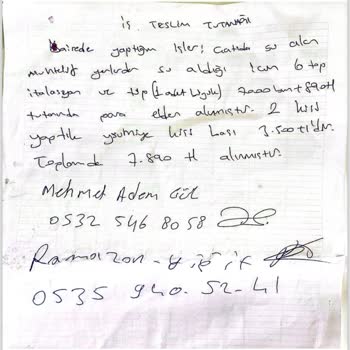 İş Teslim Tutanağı
Dairede yaptığım işler; Catıda su alan
muhtelif yerlerden su aldığı için 6 top
italasyon ve top (1 adet büyük) 7000 ban + 890 tl
tutarında para elden alınmıştır. 2 kişi
yaptık yövmiye kişi başı 3.500 tl'dir.
Toplamda 7.890 tl alınmıştır.
Mehmet Adem Gül
0532 546 8058
Ramazan - yiğit
0535 940.52-41